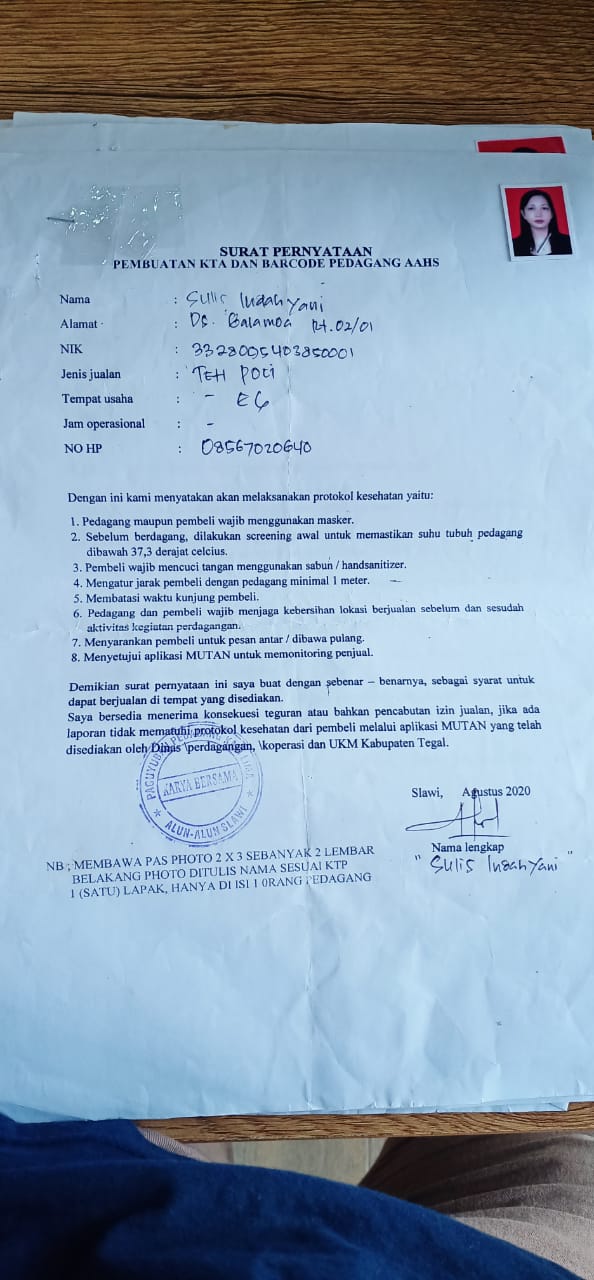 SURAT PERNYATAAN
PEMBUATAN KTA DAN BARCODE PEDAGANG AAHS
Nama : Sulis Indah Yani
Alamat : Ds. Balamoa Rt. 02/01
NIK : 3328005403850001
Jenis jualan : TEH POCI
Tempat usaha : - E6
Jam operasional : -
NO HP : 08567020640
Dengan ini kami menyatakan akan melaksanakan protokol kesehatan yaitu:
1. Pedagang maupun pembeli wajib menggunakan masker.
2. Sebelum berdagang, dilakukan screening awal untuk memastikan suhu tubuh pedagang
dibawah 37,3 derajat celcius.
3. Pembeli wajib mencuci tangan menggunakan sabun / handsanitizer.
4. Mengatur jarak pembeli dengan pedagang minimal 1 meter.
5. Membatasi waktu kunjung pembeli.
6. Pedagang dan pembeli wajib menjaga kebersihan lokasi berjualan sebelum dan sesudah
aktivitas kegiatan perdagangan.
7. Menyarankan pembeli untuk pesan antar / dibawa pulang.
8. Menyetujui aplikasi MUTAN untuk memonitoring penjual.
Demikian surat pernyataan ini saya buat dengan sebenar – benarnya, sebagai syarat untuk
dapat berjualan di tempat yang disediakan.
Saya bersedia menerima konsekuesi teguran atau bahkan pencabutan izin jualan, jika ada
laporan tidak mematuhi protokol kesehatan dari pembeli melalui aplikasi MUTAN yang telah
disediakan oleh Dinas \perdagangan, \koperasi dan UKM Kabupaten Tegal.
PAGUYUBAN PEDAGANG KAKI LIMA
KARYA BERSAMA
ALUN-ALUN SLAWI
Slawi, Agustus 2020
Nama lengkap
" Sulis Indah Yani "
NB ; MEMBAWA PAS PHOTO 2 X 3 SEBANYAK 2 LEMBAR
BELAKANG PHOTO DITULIS NAMA SESUAI KTP
1 (SATU) LAPAK, HANYA DI ISI 1 0RANG PEDAGANG